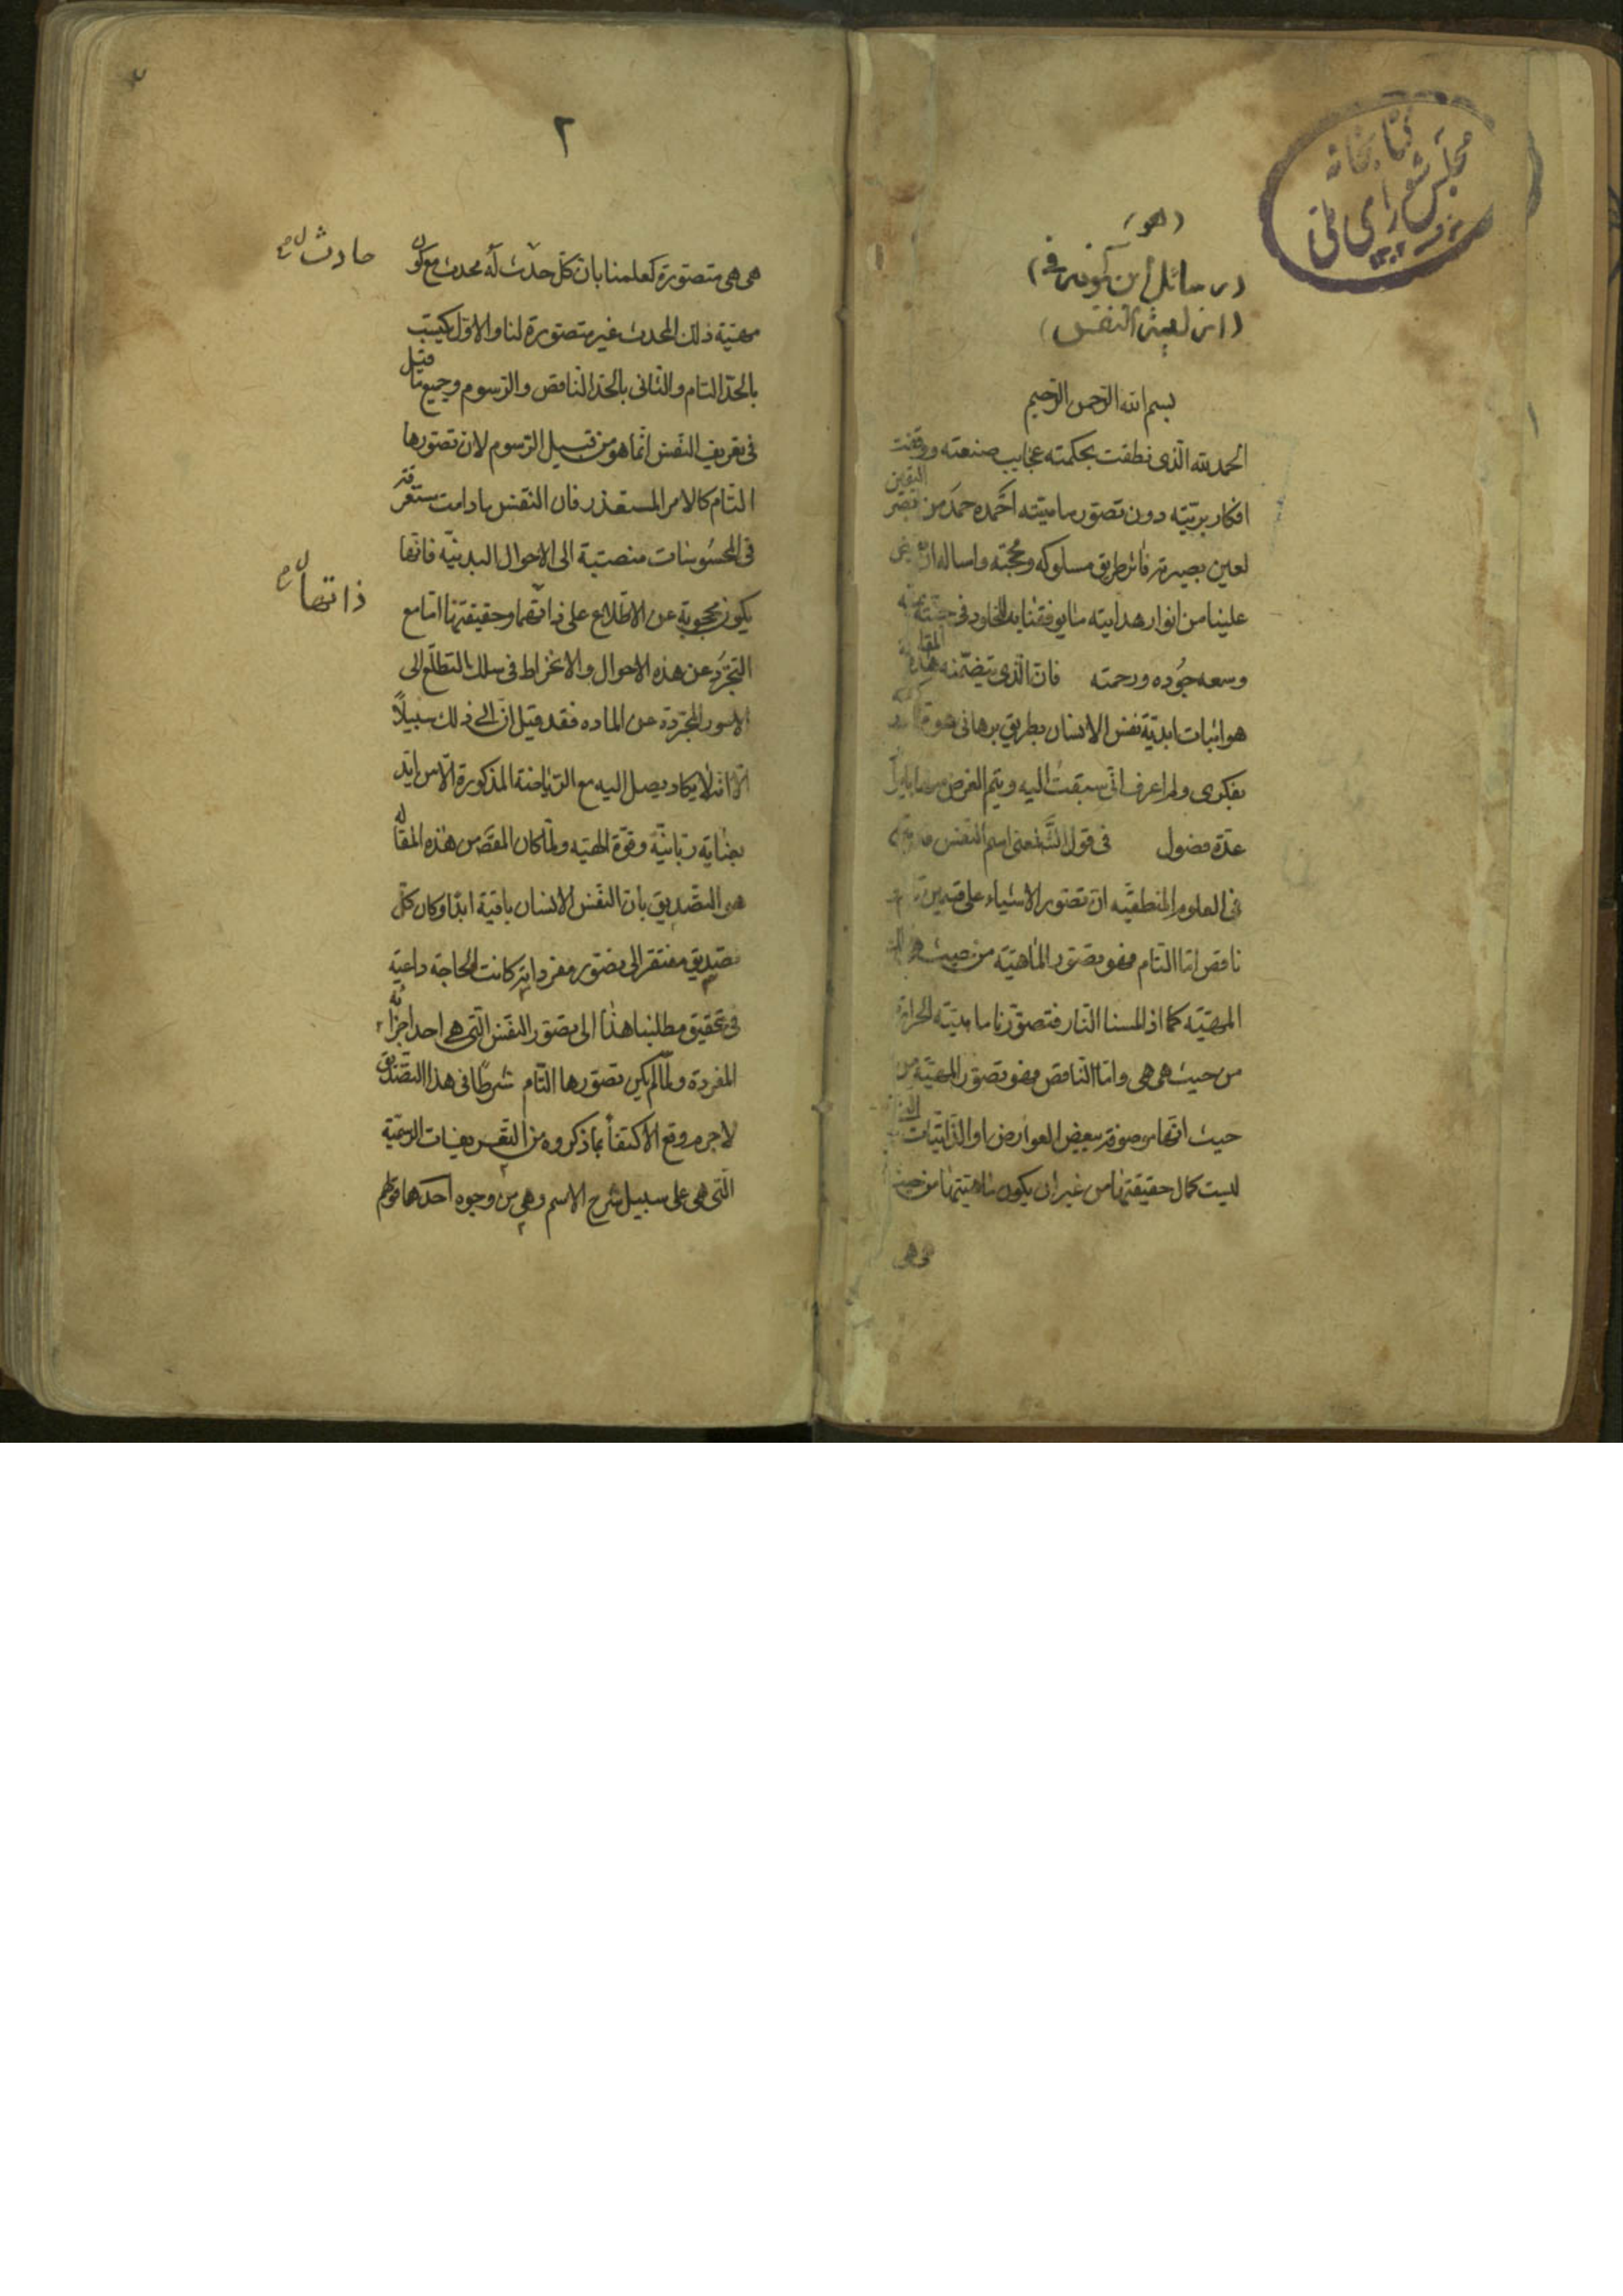 كتابخانه
مجلس شورای ملی
(هو)
(رسائل ابن كمونه في)
(ازلية النفس)
بسم الله الرحمن الرحيم
الحمد لله الذى نطقت بحكمته عجايب صنعته ووقفت
افكار بريته دون تصور ماهيته احمده حمد من
لعين بصيرته طريق مسلوكه ومحجته واساله ان
علينا من انوار هدايته ما يوفقنا به للخلود فى
وسعه جوده ورحمته فان الذى يتضمنه هذه المقالة
هو اثبات ابدية نفس الانسان بطريق برهانى
بفكرى ولم اعرف انى سبقت اليه ويتم الغرض
عدة فصول فى قول اسم النفس
فى العلوم المنطقيه ان تصور الاشياء على قسمين
ناقص اما التام فهو تصور الماهية من حيث
المهية كما اذا لمسنا النار فتصورنا ماهيته الحرارة
من حيث هى هى واما الناقص فهو تصور المهية من
حيث انها موصوفة ببعض العوارض او الذاتيات التى
ليست كمال حقيقتها من غير ان يكون ماهيتها من حيث
هى هى
٢
هى هى متصورة كعلمنا بان كل حدث له محدث مع كون
حادث ل
مهية ذلك المحدث غير متصورة لنا والاول يكتسب
بالحد التام والثانى بالحد الناقص والرسوم وجميع ما قيل
فى تعريف النفس انما هو من قبيل الرسوم لان تصورها
التام كالامر المستعذر فان النفس ما دامت مستغرقة
فى المحسوسات منصبة الى الاحوال البدنية فانها
يكون محجوبة عن الاطلاع على ذاتهما وحقيقتها اما مع
ذاتها ل
التجرد عن هذه الاحوال والانخراط فى سلك التطلع الى
الامور المجردة عن الماده فقد قيل ان الى ذلك سبيلاً
الا انه لا يكاد يصل اليه مع الرياضة المذكورة الا من ايد
بعناية ربانية وقوة الهيه ولما كان المقصد من هذه المقالة
هى التصديق بان النفس الانسان باقية ابدًا وكان كل
تصديق مفتقر الى تصور مفرداته كانت الحاجة داعية
فى تحقيق مطلبنا هذا الى تصور النفس التى هى احد اجزائه
المفردة ولما لم يكن تصورها التام شرطًا فى هذا التصديق
لاجرم وقع الاكتفأ بما ذكروه من التعريفات الرسمية
التى هى على سبيل شرح الاسم وهى من وجوه احدها قولهم